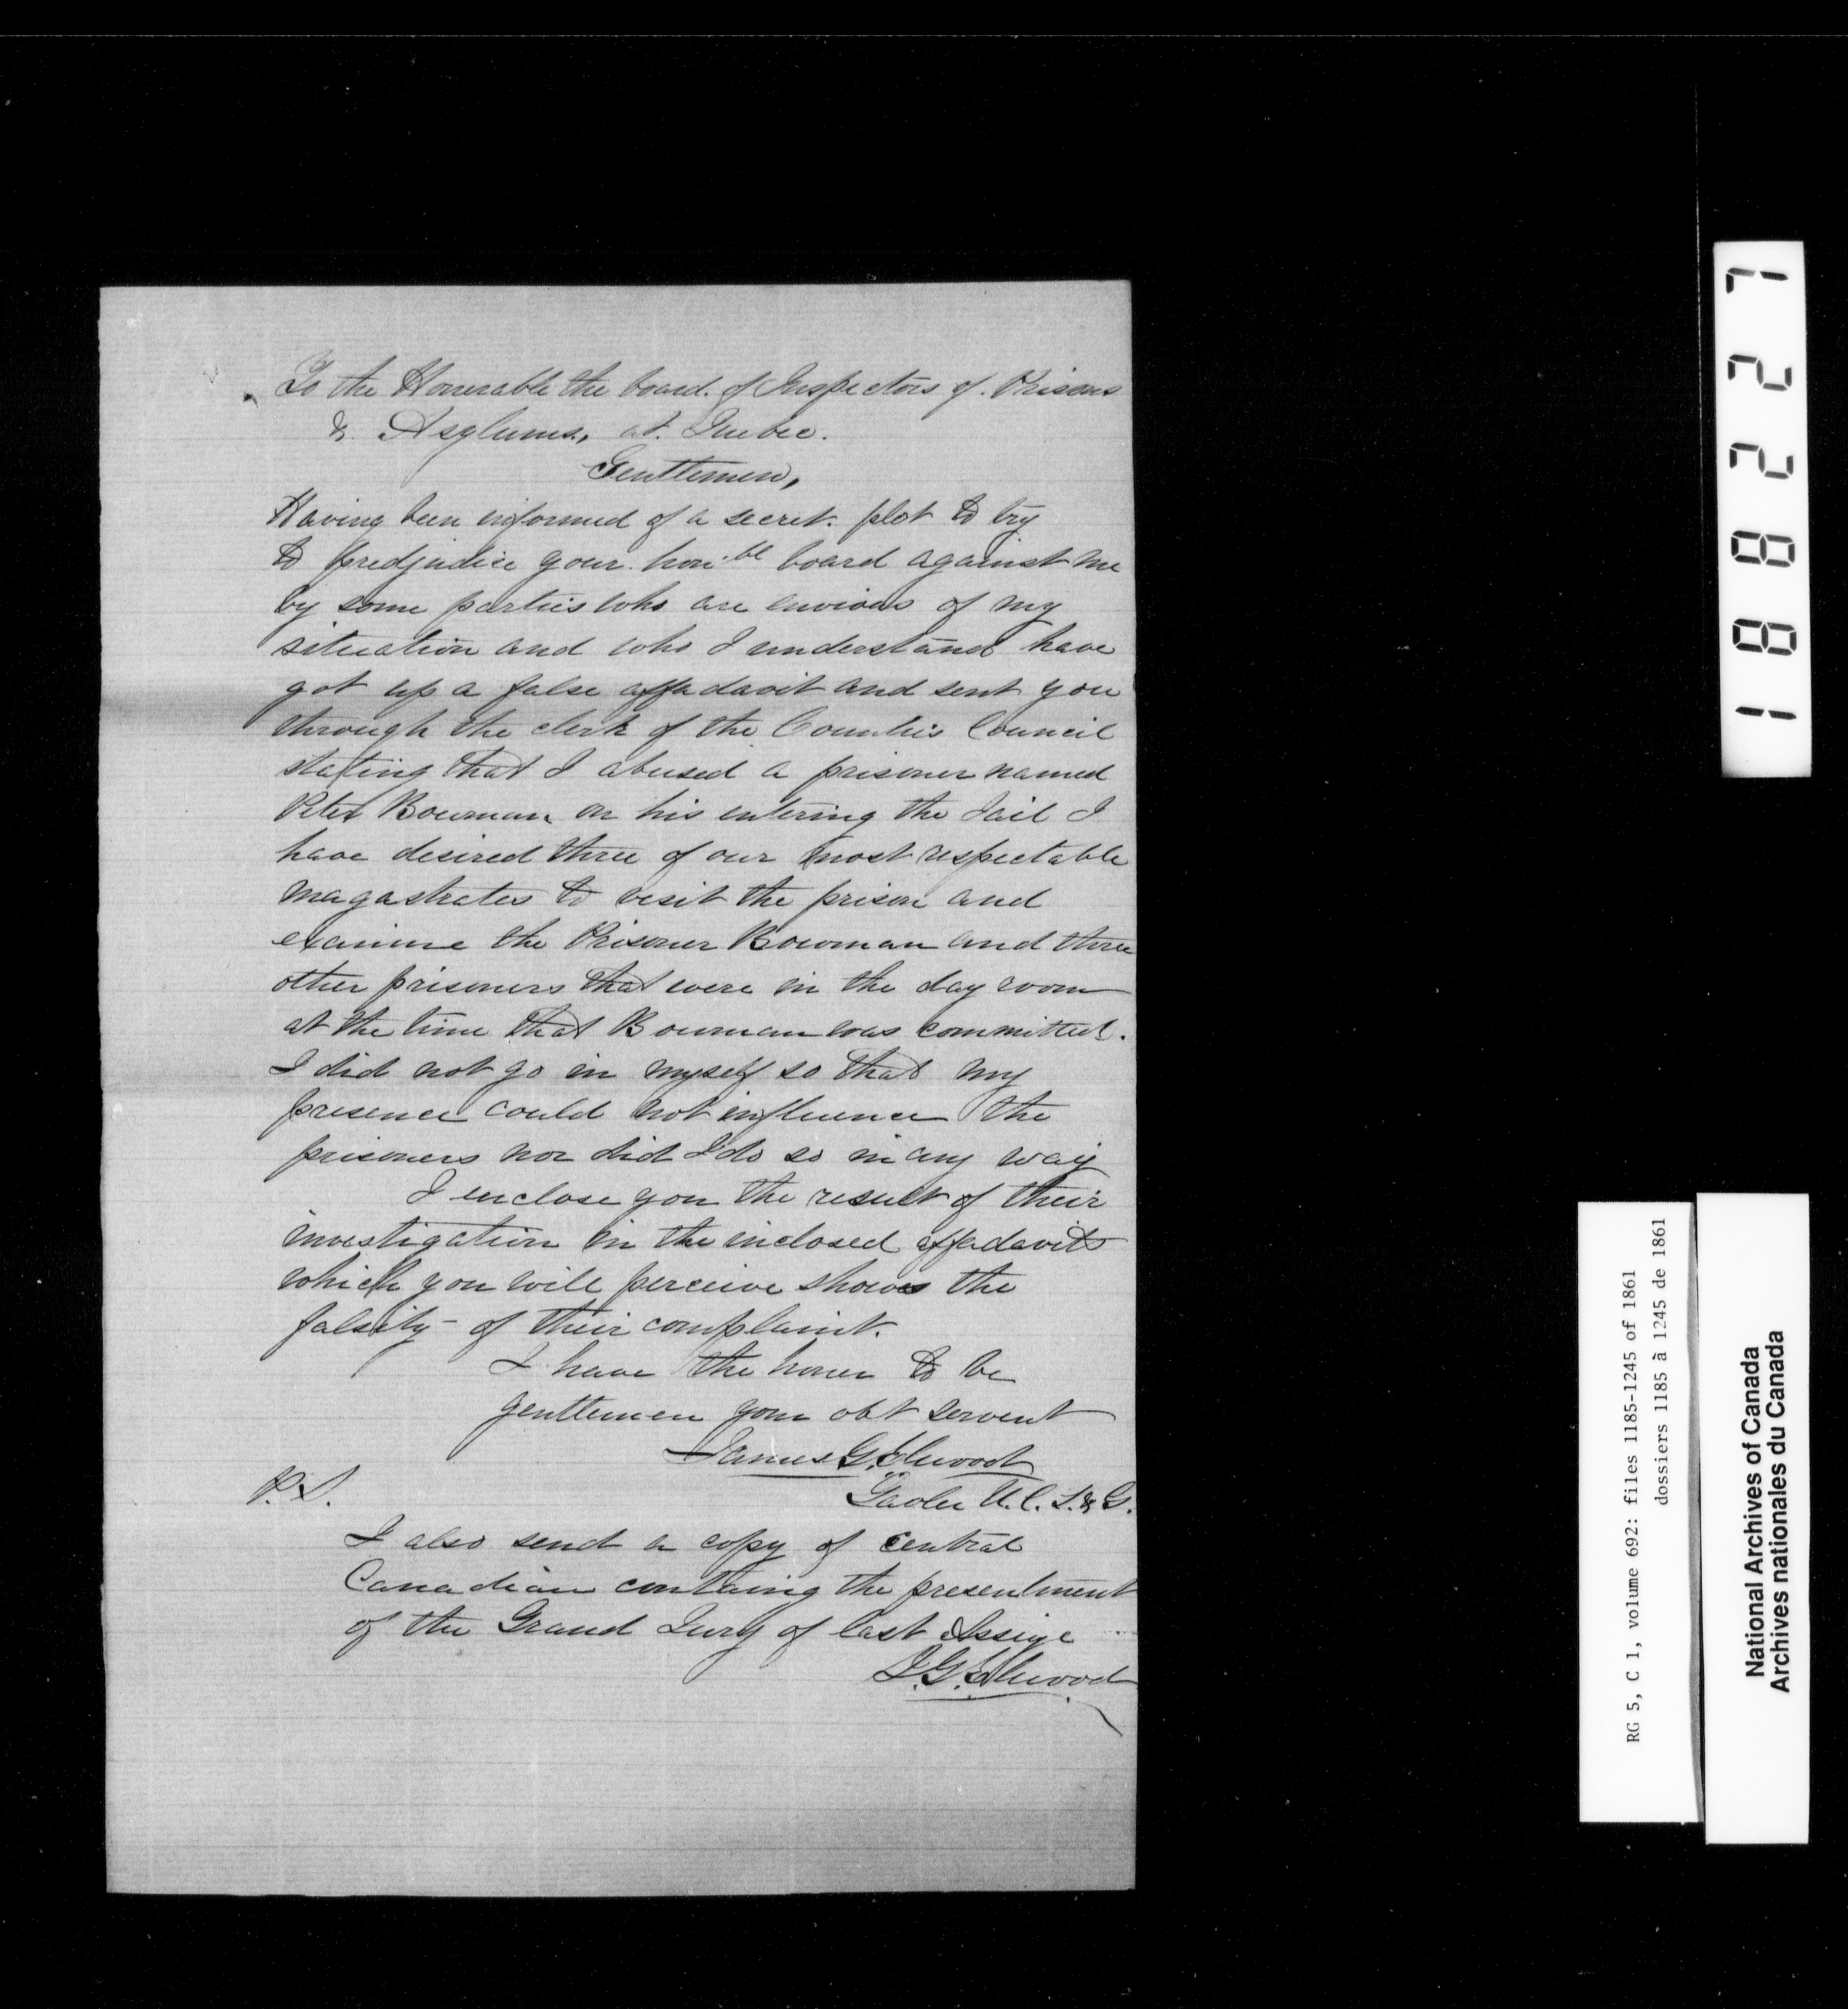 To the Honerable the board of Inspectors of Prisons
& Asylums, at Quebec.
Gentlemen,
Having been informed of a secret plot to try
to predjudice your hon.bl board against me
by some parties who are envious of my
situation and who I understand have
got up a false affadavit and sent you
through the clerk of the Counties Council
stating that I abused a prisoner named
Peter Bowman on his entering the Jail I
have desired three of our most respectable
magastrates to visit the prison and
examine the Prisoner Bowman and three
other prisoners that were in the day room
at the time that Bowman was committed.
I did not go in myself so that my
presence could not influence the
prisoners nor did I do so in any way
I enclose you the result of their
investigation in the inclosed affadavits
which you will perceive shows the
falsity of their complaint.
I have the honor to be
gentlemen your obt servent
James G.
Gaoler U.C. L. & G.
P.S.
I also send a copy of Central
Canadian containg the presentment
of the Grand Jury of last Assize
J.G.
188227
RG 5, C 1, volume 692: files 1185-1245 of 1861
dossiers 1185 à 1245 de 1861
National Archives of Canada
Archives nationales du Canada